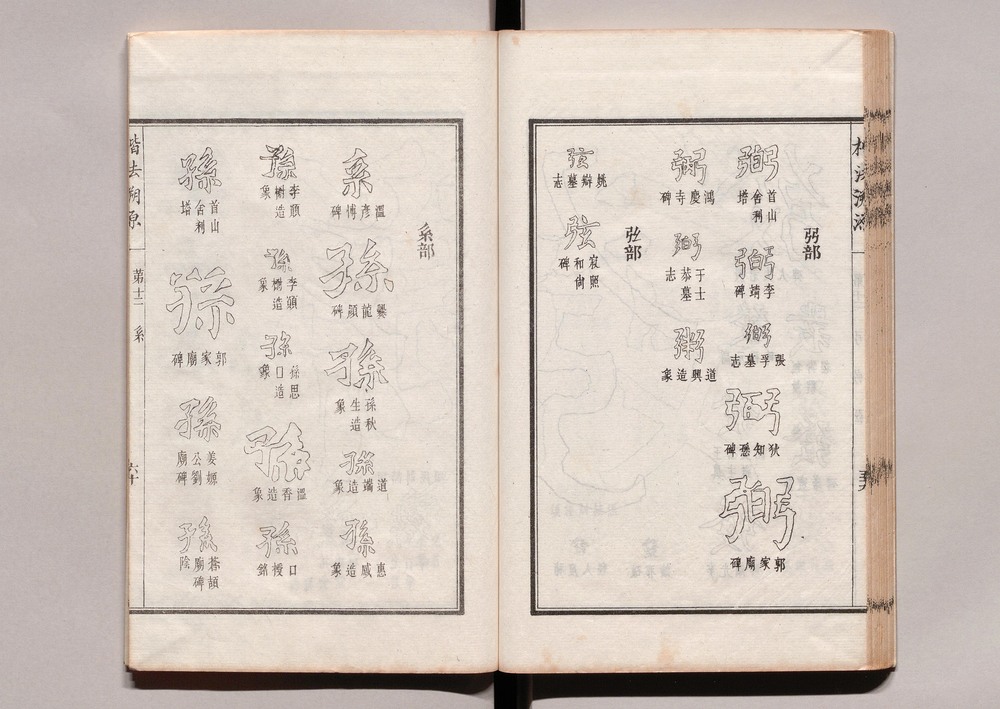 弜部
弼
首山舍利塔
弼
李靖碑
弼
張孚墓志
弼
狄知愻碑
弼
郭家廟碑
粥
鴻慶寺碑
粥
于士恭墓志
粥
道興造象
弦部
弦
姚辯墓志
弦
寂照和尙碑
系部
系
溫彥博碑
孫
爨龍顏碑
孫
孫秋生造象
孫
道端造象
孫
惠感造象
孫
李頵造樹象
孫
李頵造樹象
孫
孫思口造象
孫
溫香造象
孫
口授銘
孫
首山舍利塔
孫
郭家廟碑
孫
姜嫄公劉廟碑
孫
蒼頡廟碑陰
楷法溯源
第十二
系
六十